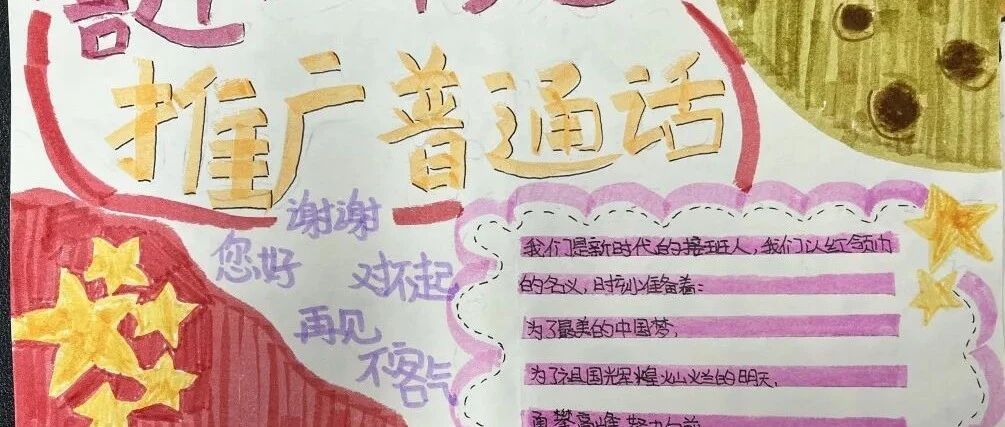 推广普通话
谢谢
您好
对不起
再见
不客气
我们是新时代的接班人，我们以红领巾
的名义，时刻准备着：
为了最美的中国梦，
为了祖国光辉煌灿烂的明天，
勇攀高峰